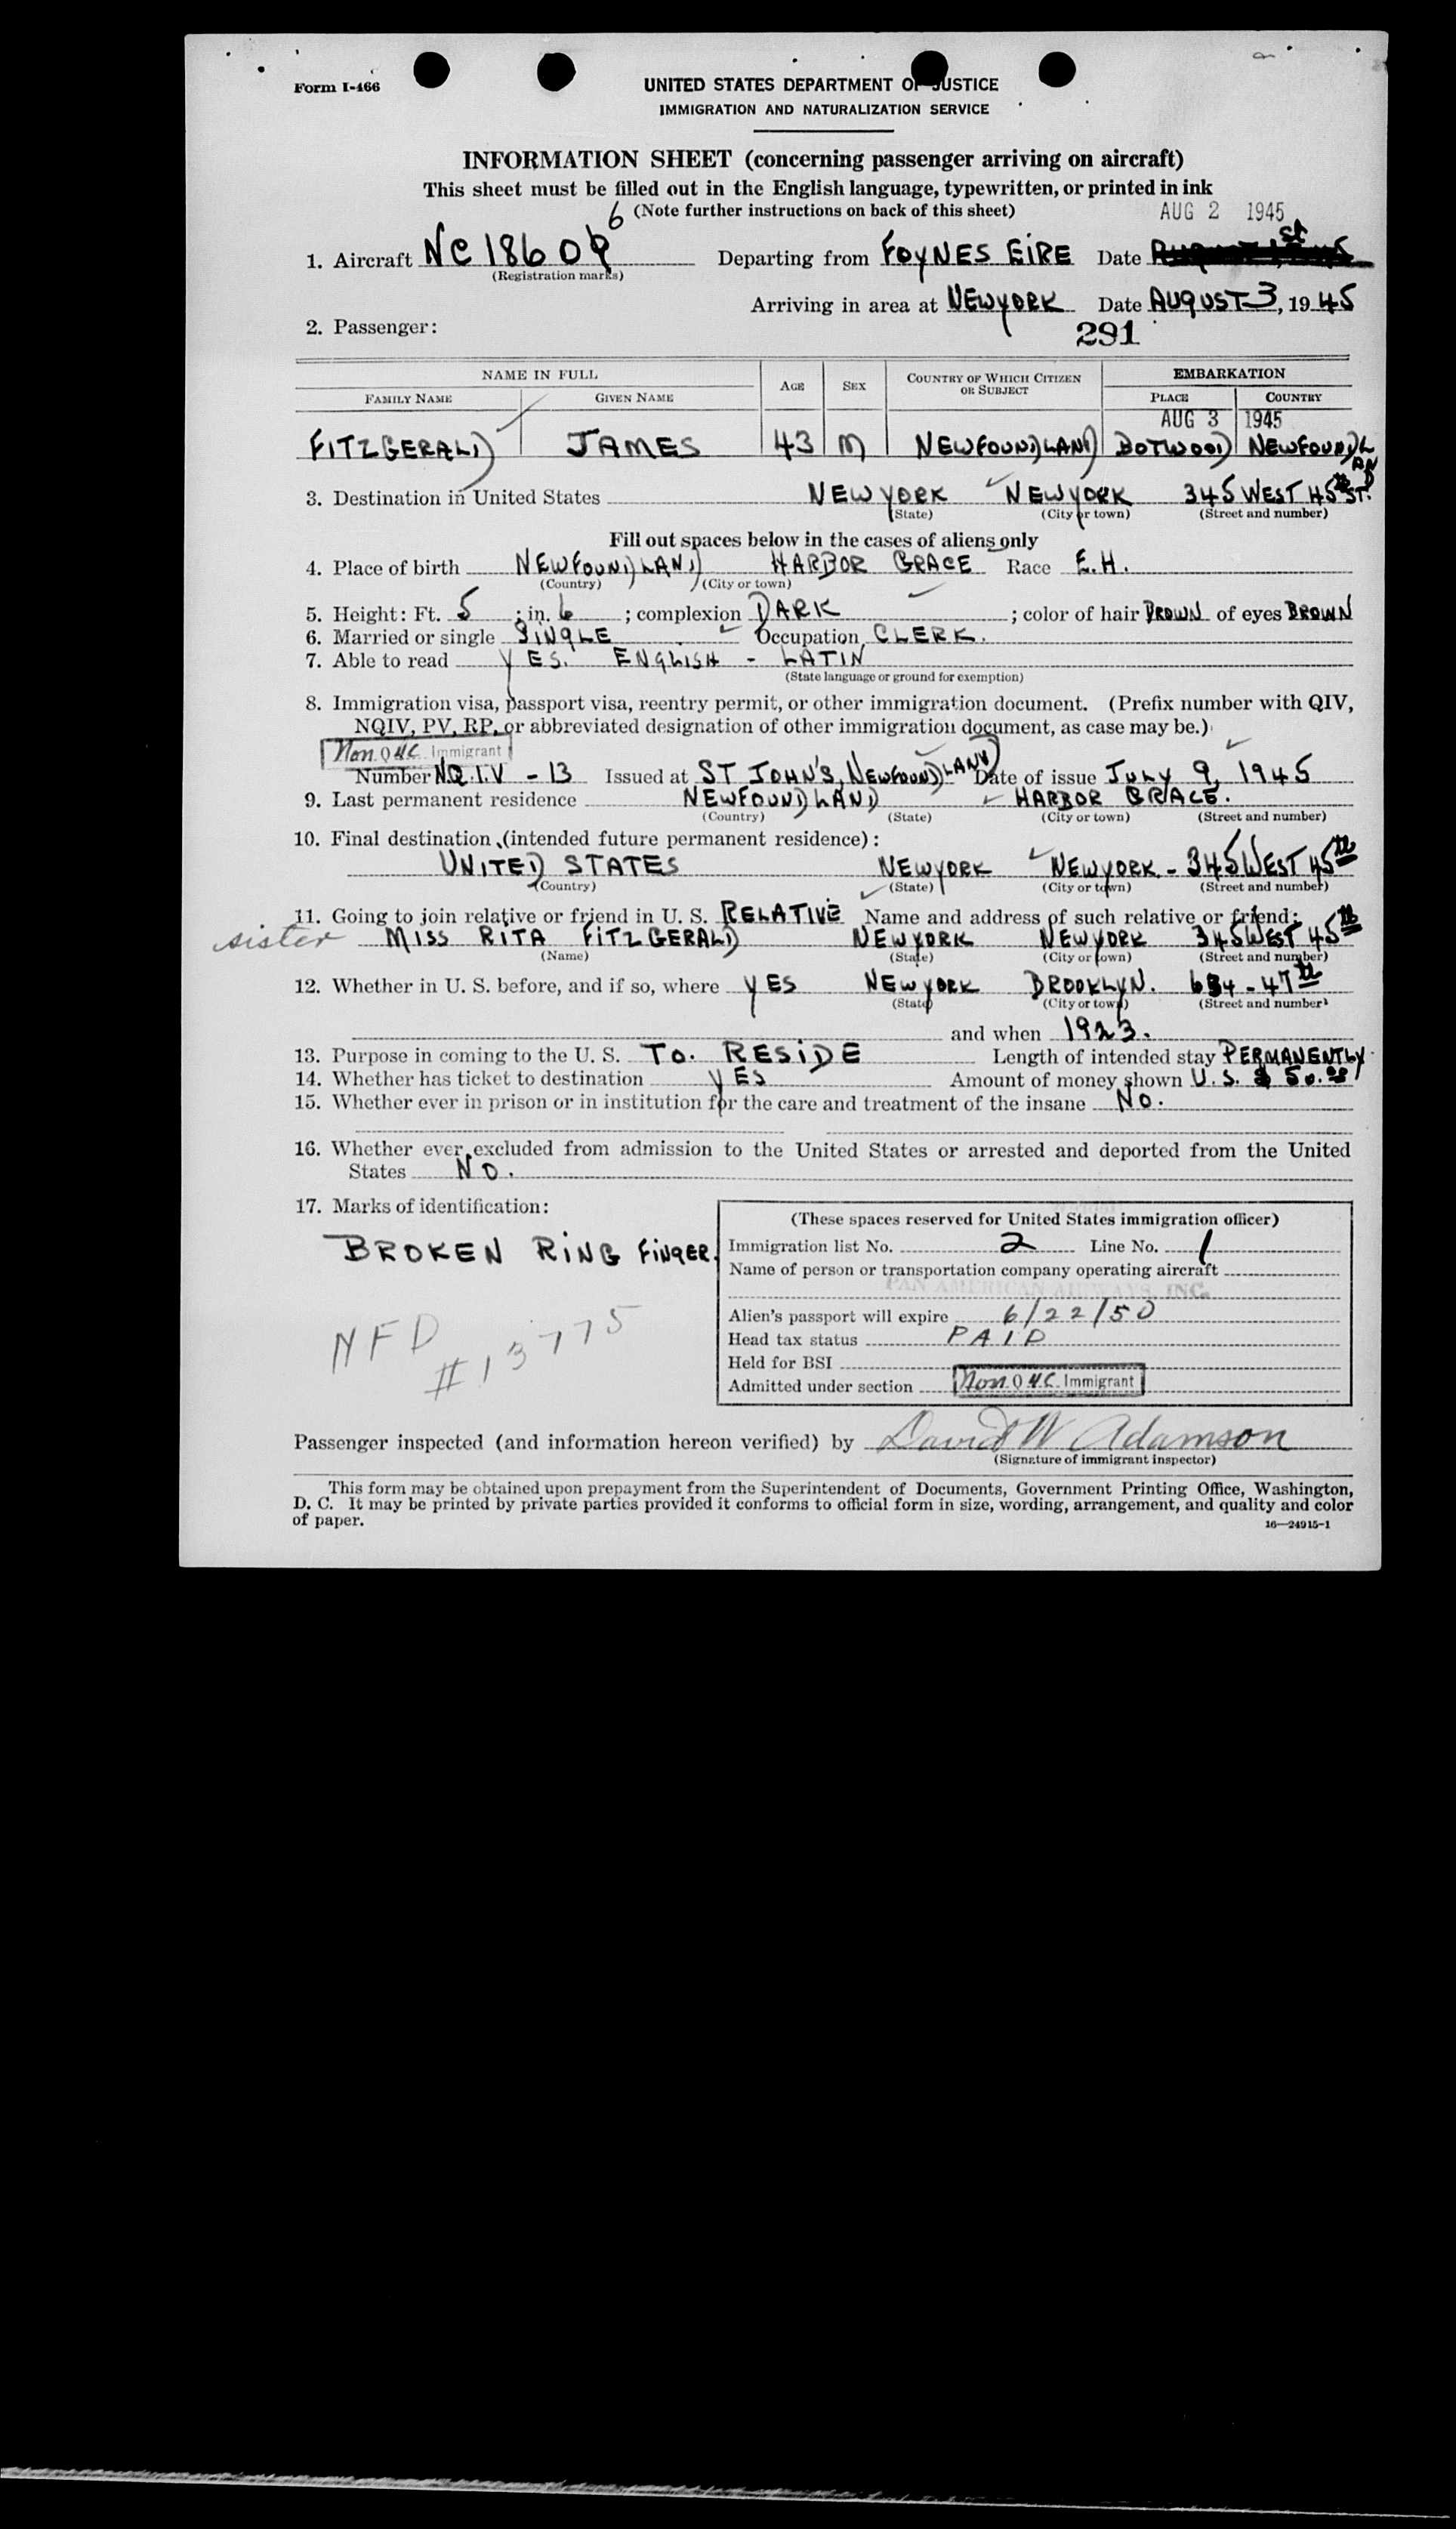 Form I-466
UNITED STATES DEPARTMENT OF JUSTICE
IMMIGRATION AND NATURALIZATION SERVICE
INFORMATION SHEET (concerning passenger arriving on aircraft)
This sheet must be filled out in the English language, typewritten, or printed in ink
(Note further instructions on back of this sheet)
AUG 2 1945
6
1. Aircraft NC 18609 Departing from FOYNES EIRE Date
(Registration marks)
Arriving in area at NEWYORK Date AUGUST 3, 1945
2. Passenger:
291
NAME IN FULL AGE SEX COUNTRY OF WHICH CITIZEN OR SUBJECT EMBARKATION
FAMILY NAME GIVEN NAME PLACE COUNTRY
AUG 3 1945
FITZGERALD JAMES 43 M NEWFOUNDLAND BOTWOOD NEWFOUNDLAND
3. Destination in United States NEW YORK NEWYORK 345 WEST 45th ST.
(State) (City or town) (Street and number)
Fill out spaces below in the cases of aliens only
4. Place of birth NEWFOUNDLAND HARBOR GRACE Race E.H.
(Country) (City or town)
5. Height: Ft. 5 ; in. 6 ; complexion DARK ; color of hair BROWN of eyes BROWN
6. Married or single SINGLE Occupation CLERK.
7. Able to read YES. ENGLISH - LATIN
(State language or ground for exemption)
8. Immigration visa, passport visa, reentry permit, or other immigration document. (Prefix number with QIV,
NQIV, PV, RP, or abbreviated designation of other immigration document, as case may be.)
Non Immigrant
Number N.Q.I.V - 13 Issued at ST JOHN'S, NEWFOUNDLAND Date of issue JULY 9, 1945
9. Last permanent residence NEWFOUNDLAND HARBOR GRACE.
(Country) (State) (City or town) (Street and number)
10. Final destination (intended future permanent residence):
UNITED STATES NEWYORK NEWYORK - 345 WEST 45th
(Country) (State) (City or town) (Street and number)
11. Going to join relative or friend in U. S. RELATIVE Name and address of such relative or friend:
sister MISS RITA FITZGERALD NEWYORK NEWYORK 345 WEST 45th
(Name) (State) (City or town) (Street and number)
12. Whether in U. S. before, and if so, where YES NEWYORK BROOKLYN. 634 - 47th
(State) (City or town) (Street and number)
and when 1923.
13. Purpose in coming to the U. S. TO. RESIDE Length of intended stay PERMANENTLY
14. Whether has ticket to destination YES Amount of money shown U.S. $ 50.00
15. Whether ever in prison or in institution for the care and treatment of the insane NO.
16. Whether ever excluded from admission to the United States or arrested and deported from the United
States NO.
17. Marks of identification:
BROKEN RING FINGER.
NFD
#13775
(These spaces reserved for United States immigration officer)
Immigration list No. 2 Line No. 1
Name of person or transportation company operating aircraft
PAN AMERICAN AIRWAYS, INC.
Alien's passport will expire 6/22/50
Head tax status PAID
Held for BSI
Admitted under section Non Immigrant
Passenger inspected (and information hereon verified) by David W Adamson
(Signature of immigrant inspector)
This form may be obtained upon prepayment from the Superintendent of Documents, Government Printing Office, Washington,
D. C. It may be printed by private parties provided it conforms to official form in size, wording, arrangement, and quality and color
of paper.
16—24915-1